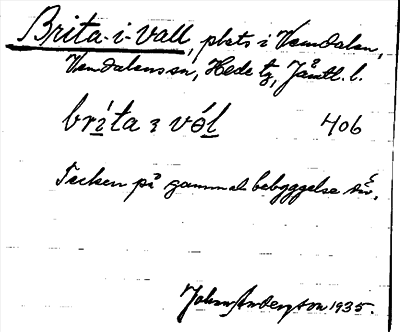 Brita-i-vall, plats i Vemdalen,
Vemdalens sn, Hede tg, Jämtl. l.
bríta ɿ vól 406
Tecken på gammal bebyggelse där.
John Anderson 1935.